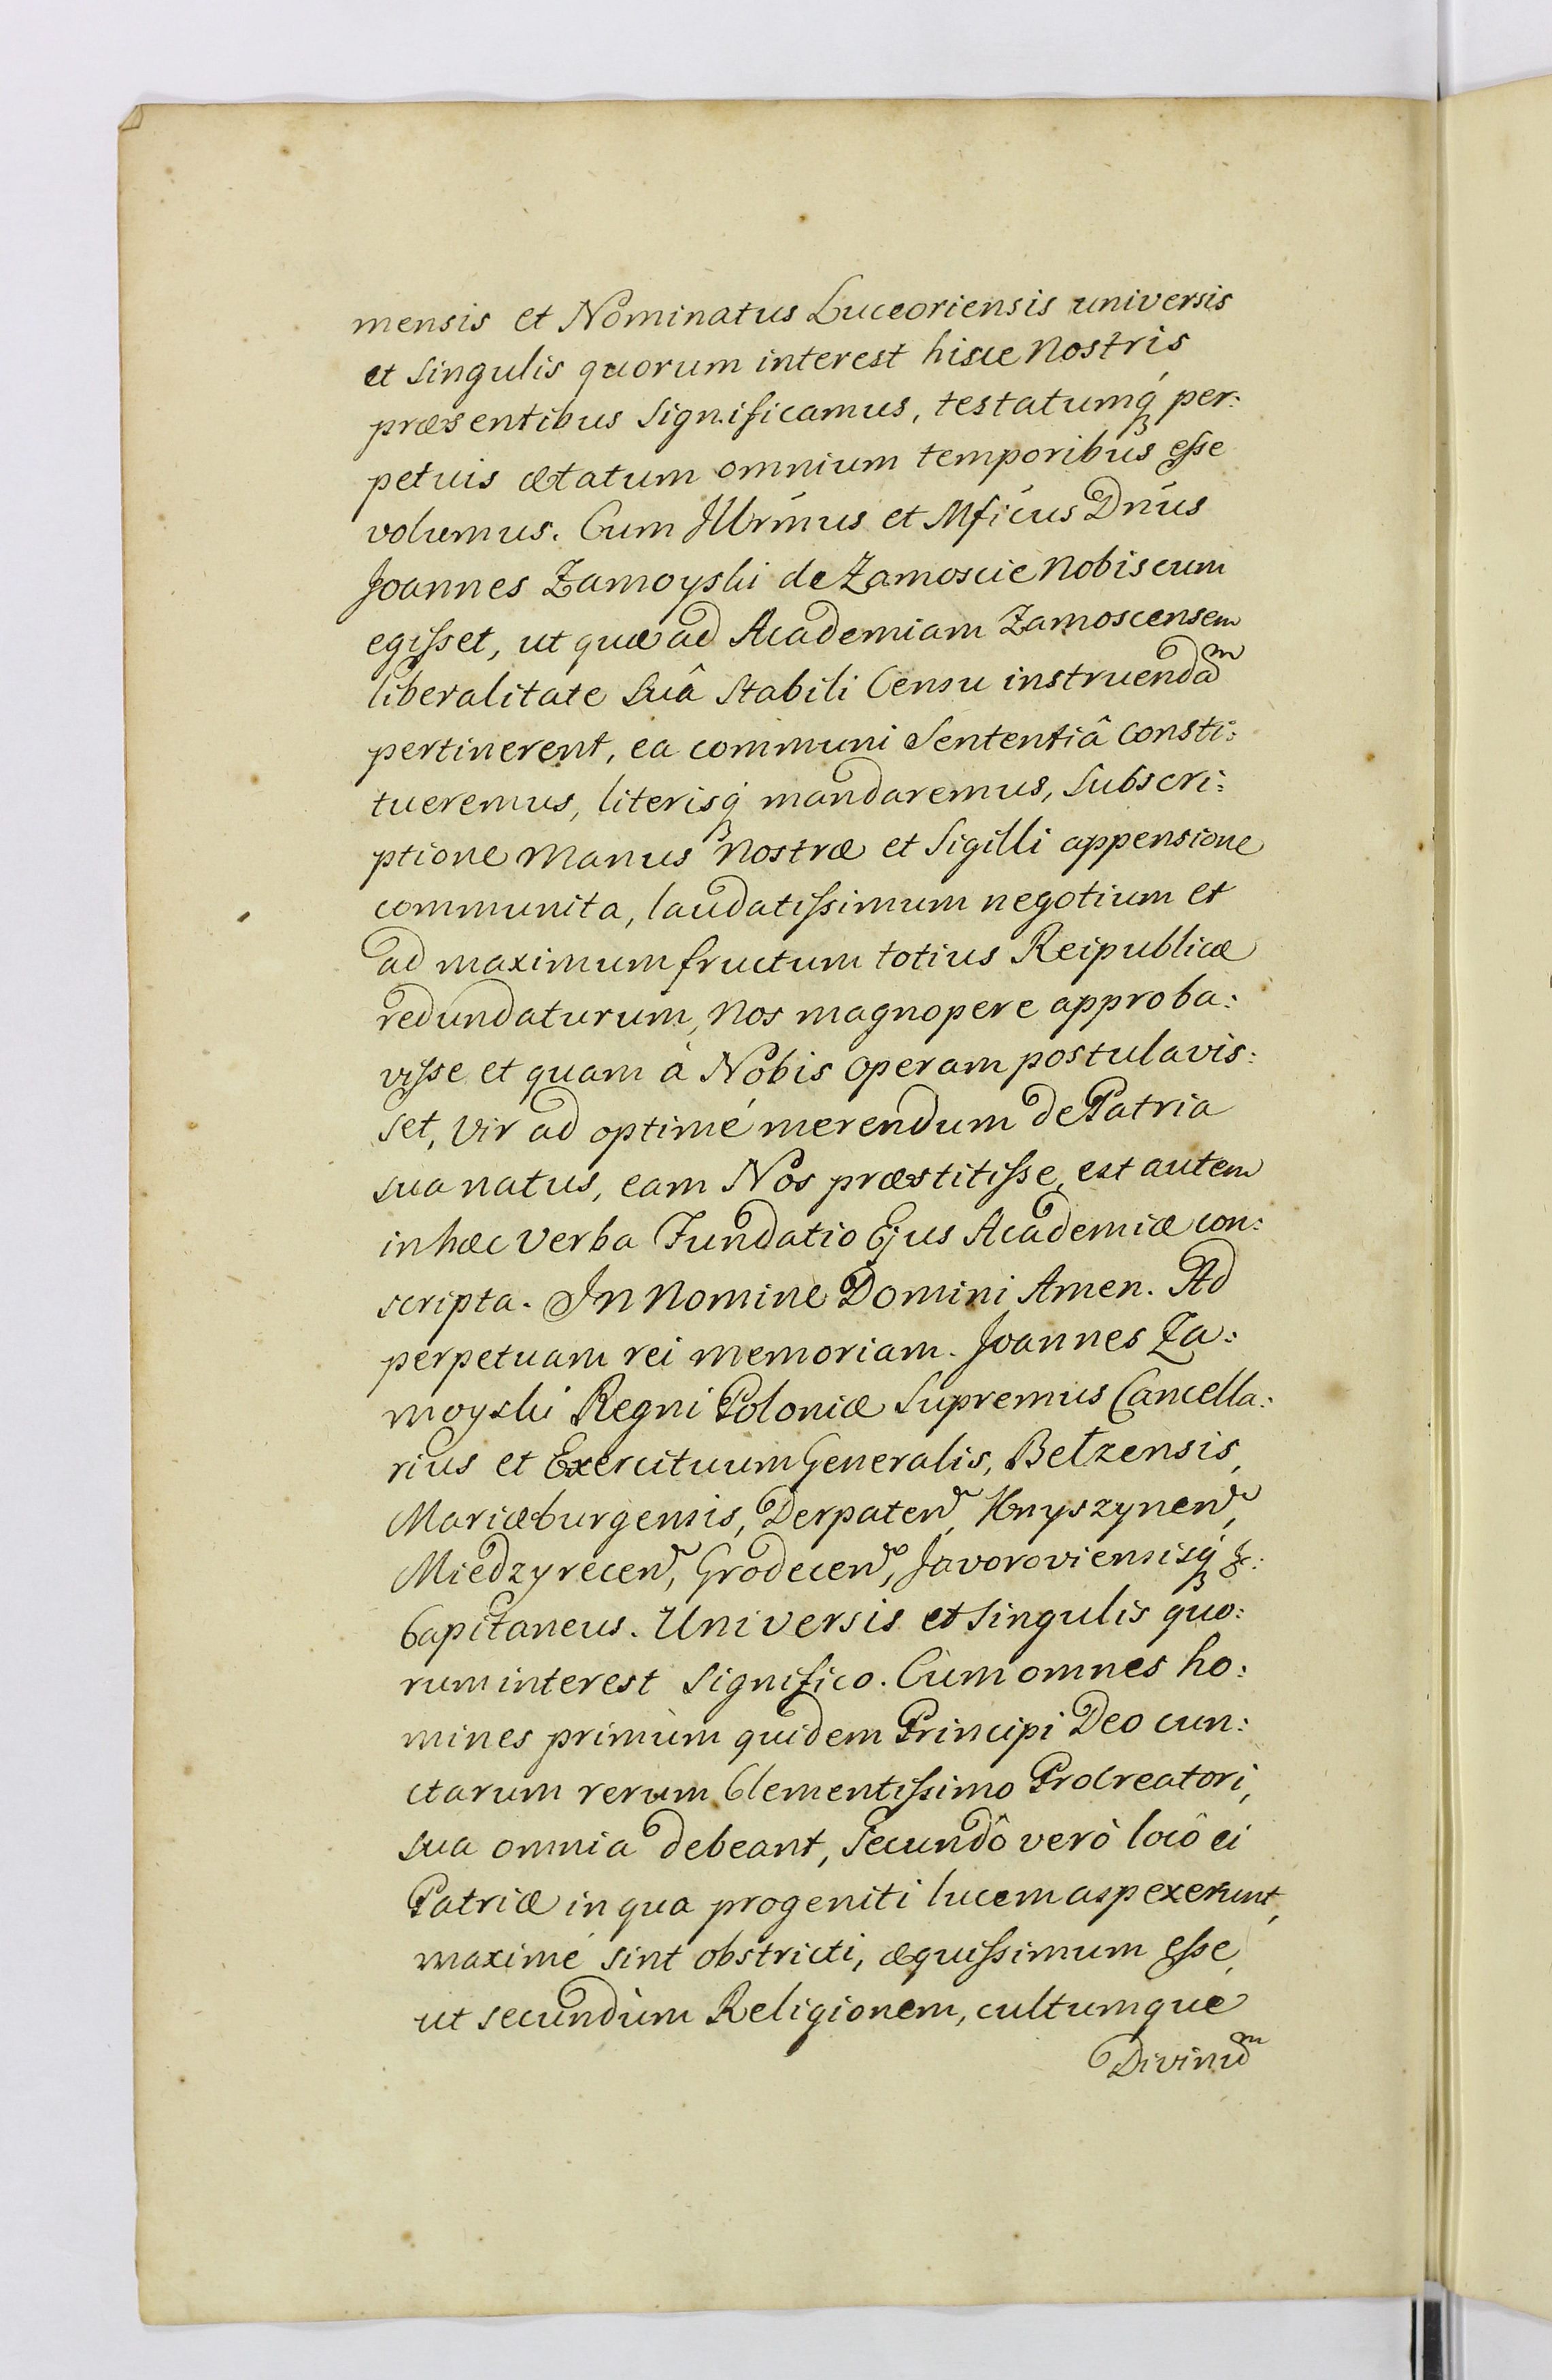 mensis et Nominatus Luceoriensis universis
et singulis quorum interest hisce Nostris
præsentibus significamus, testatumq́ per:
petuis ætatum omnium temporibus esse
volumus. Cum Jllrm̃us et Mfi̇cus Dñus
Joannes Zamoyski de Zamoscie Nobiscum
egisset, ut quæ ad Academiam Zamoscensem
liberalitate suâ stabili Censu instruendaᵐ
pertinerent, ea communi Sententiâ consti:
tueremus, literisq́ mandaremus, subscri:
ptione Manus Nostræ et Sigilli appensione
communita, laudatissimum negotium et
ad maximum fructum totius Reipublicæ
redundaturum, Nos magnopere approba:
visse et quam à Nobis operam postulavis:
set, Vir ad optimé merendum de Patria
sua natus, eam Nos præstitisse, est autem
in hæc Verba Fundatio Ejus Academiæ con:
scripta. In Nomine Domini Amen. Ad
perpetuam rei memoriam. Joannes Za:
moyski Regni Poloniæ Supremus Cancella:
rius et Exercituum Generalis, Bełzensis,
Mariæburgensis, Derpaten̄, Knyszynen̄,
Miedzyrecen̄, Grodecen̄, Javoroviensisq́ &:
Capitaneus. Universis et singulis quo:
rum interest significo. Cùm omnes ho:
mines primùm quidem Principi Deo cun:
ctarum rerum Clementissimo Procreatori,
sua omnia debeant, secundô verò locô ei
Patriæ in qua progeniti lucem aspexerunt,
maximé sint obstricti, æquissimum esse,
ut secundùm Religionem, cultumque
Divinuᵐ